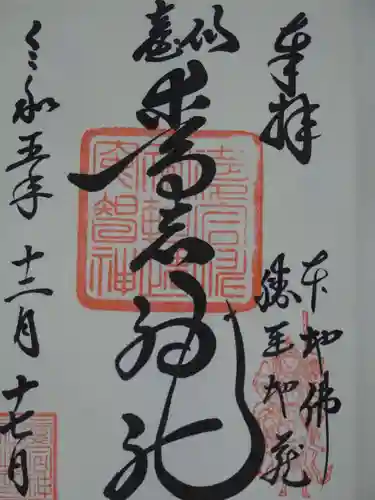 奉拝
本地佛
勝軍地蔵
仙臺
愛宕神社
令和五年 十二月 十七日